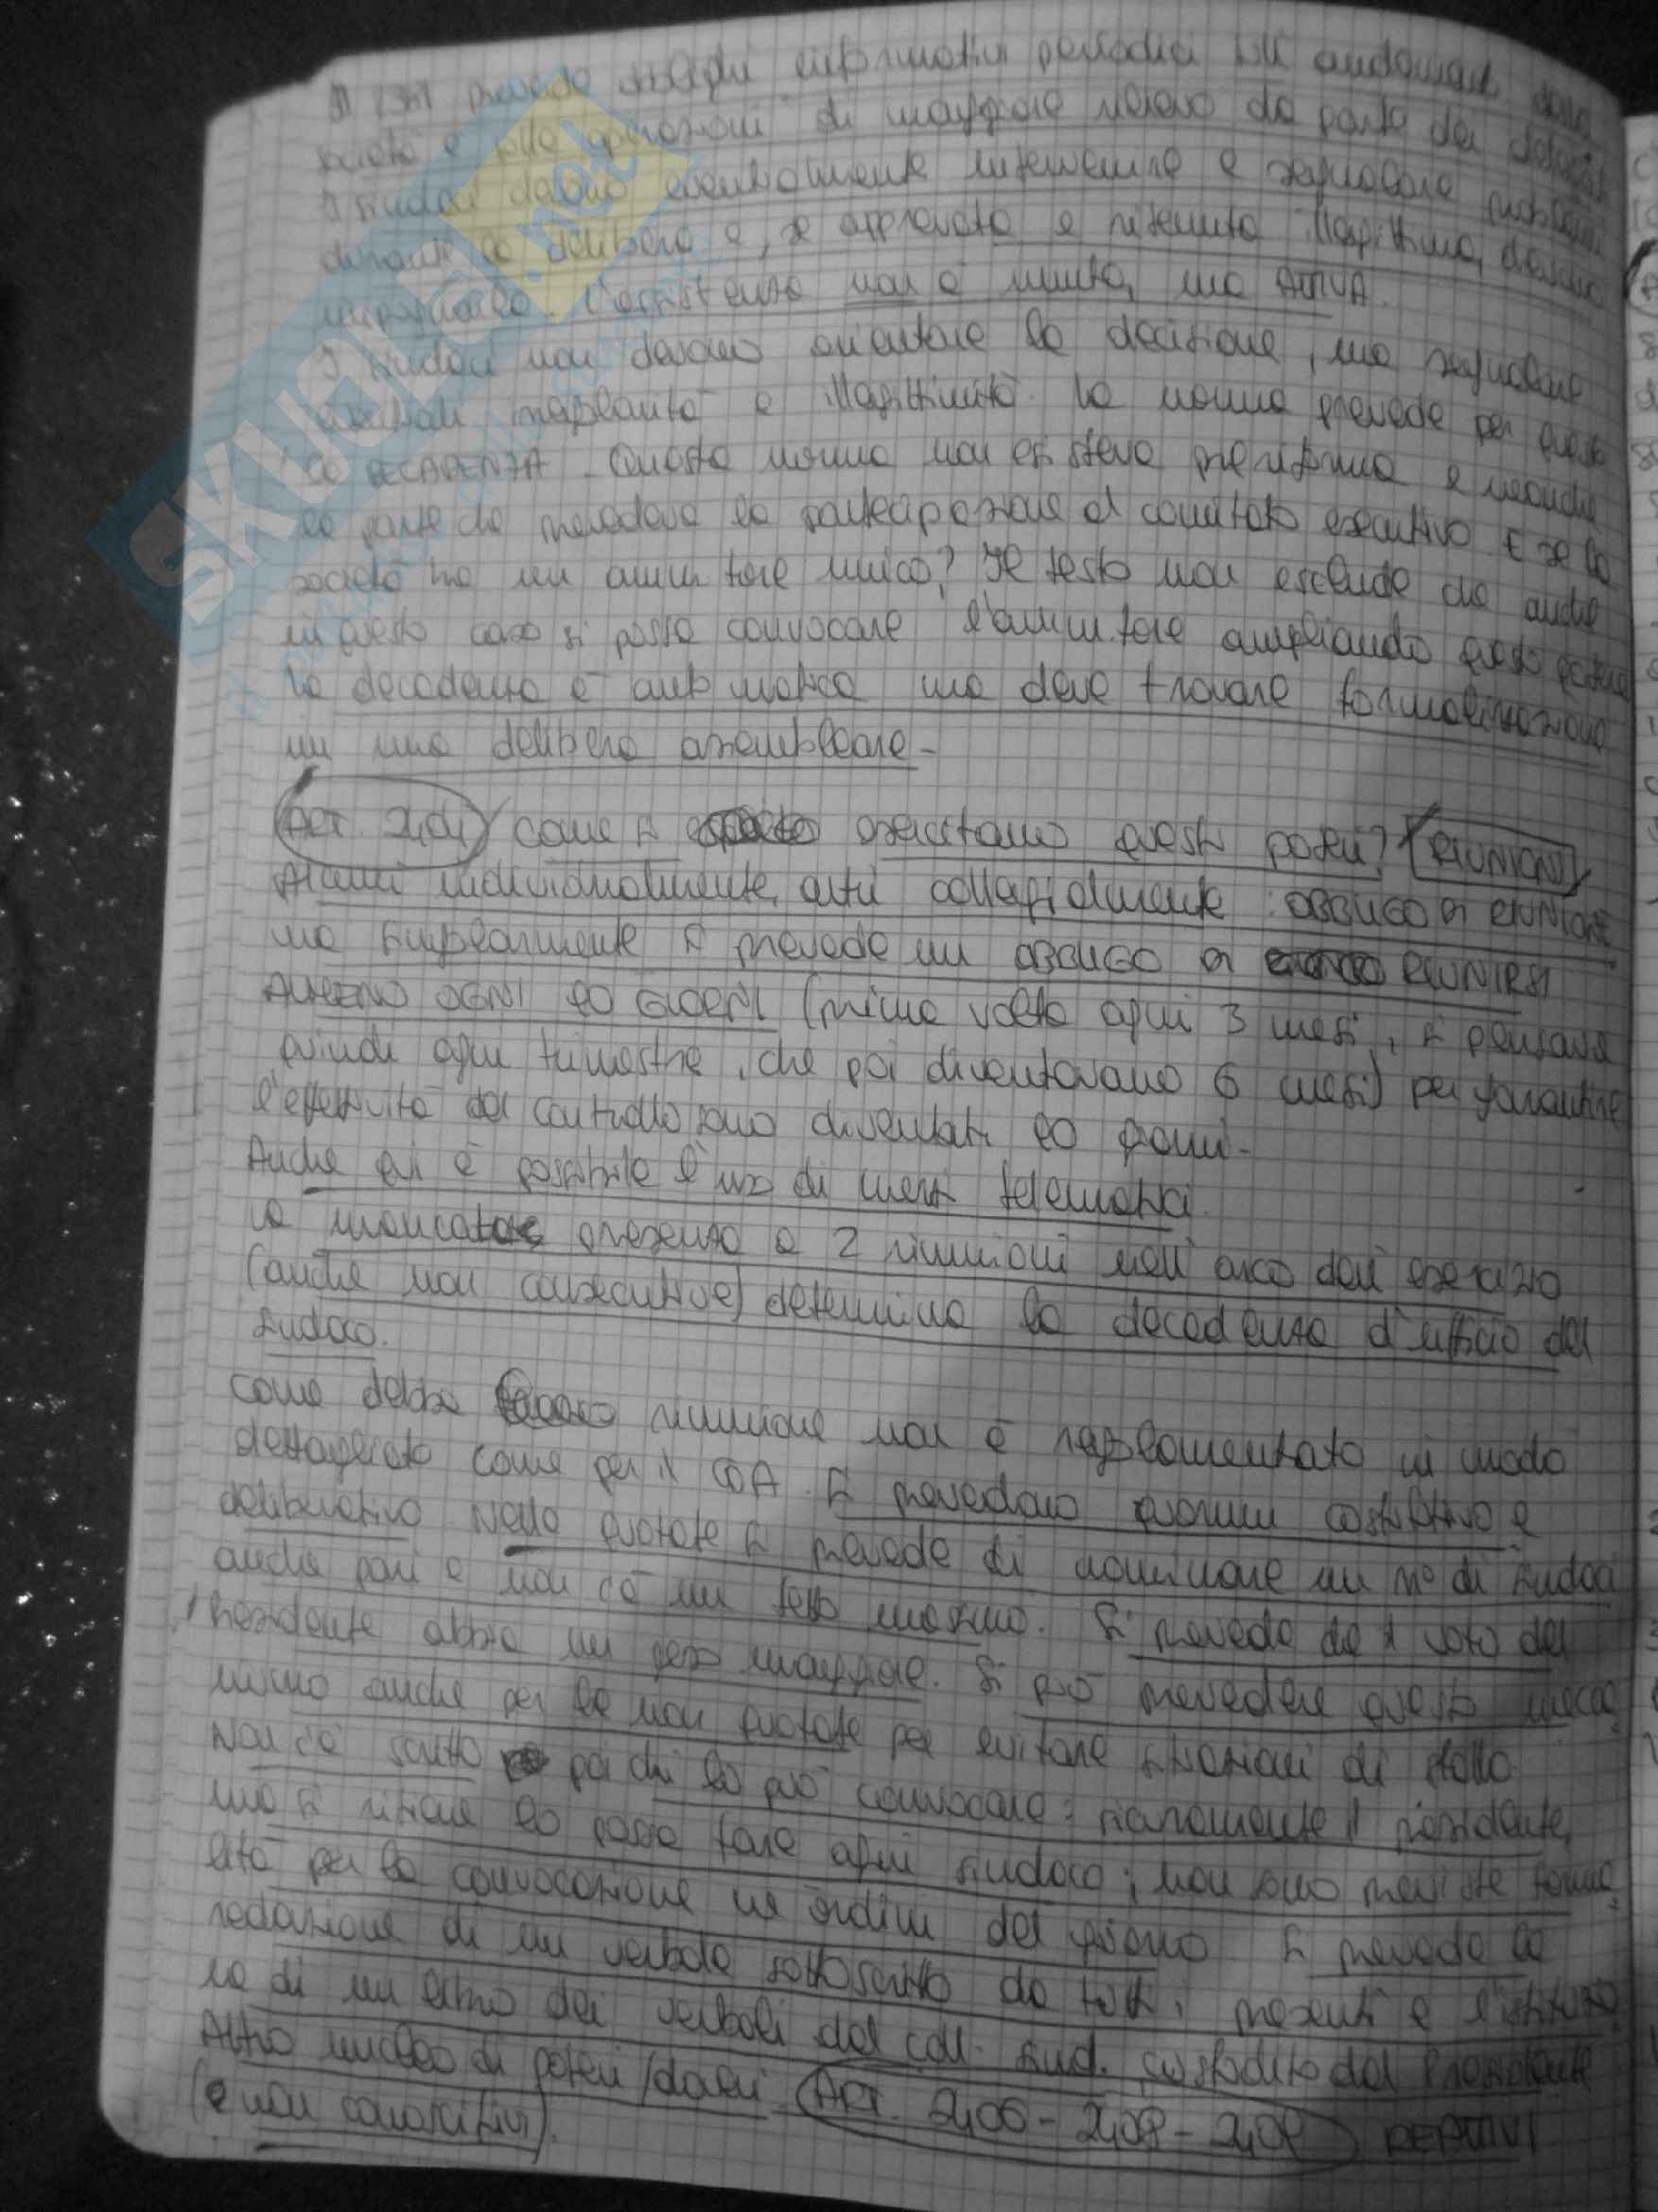 prevede obblighi informativi periodici sull' andamento della
società e sulle operazioni di maggiore rilievo da parte dei
I sindaci devono eventualmente intervenire e segnalare problemi
durante la delibera e, se approvata e ritenuta illegittima, devono
impugnarla. L'assistenza non è muta, ma ATTIVA.
I sindaci non devono orientare la decisione, ma segnalare
eventuali irregolarità e illegittimità. La norma prevede per questo
la DECADENZA. Questa norma non esisteva preriforma e neanche
la parte che prevedeva la partecipazione al comitato esecutivo. E se la
società ha un amm.tore unico? Il testo non esclude che anche
in questo caso si possa convocare l'amm.tore ampliando questo potere
La decadenza è automatica ma deve trovare formalizzazione
in una delibera assembleare-
ART. 2404 come si esercitano questi poteri? RIUNIONI
Alcuni individualmente, altri collegialmente: OBBLIGO DI RIUNIONE
ma si prevede un OBBLIGO DI RIUNIRSI
ALMENO OGNI 90 GIORNI (prima volta ogni 3 mesi, si pensava
quindi ogni trimestre, che poi diventavano 6 mesi) per garantire
l'effettività del controllo sono diventati 90 giorni-
Anche qui è possibile l'uso di mezzi telematici.
La mancata presenza a 2 riunioni nell' arco dell'esercizio
(anche non consecutive) determina la decadenza d'ufficio del
sindaco.
Come debba riunione non è regolamentato in modo
dettagliato come per il CDA. Si prevedono quorum costitutivo e
deliberativo. Nelle quotate si prevede di nominare un n° di sindaci
anche pari e non c'è un tetto massimo. Si prevede che il voto del
Presidente abbia un peso maggiore. Si può prevedere questo mecca
nismo anche per le non quotate per evitare situazioni di stallo.
Non c'è scritto poi chi lo può convocare: sicuramente il presidente,
ma si ritiene lo possa fare ogni sindaco; non sono previste forma
lità per la convocazione né ordini del giorno. Si prevede la
redazione di un verbale sottoscritto da tutti i presenti e l'istituzio
ne di un libro dei verbali del coll. sind. custodito dal Presidente
Altro nucleo di poteri/doveri. ART. 2406 - 2408 - 2409 REATTIVI
(e non conoscitivi).
SKUOLA.net